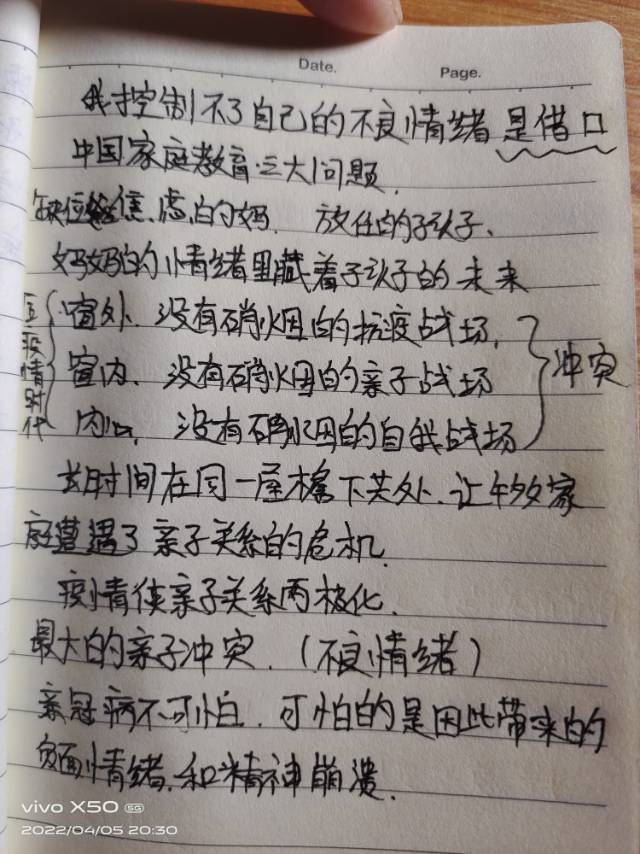 Date.
Page.
我控制不了自己的不良情绪是借口
中国家庭教育三大问题.
缺位爸焦虑的妈. 放任的孩子、
妈妈的情绪里藏着孩子的未来
后疫情时代
窗外. 没有硝烟的抗疫战场,
室内. 没有硝烟的亲子战场
内心, 没有硝烟的自我战场
冲突
长时间在同一屋檐下共处. 让许多家
庭遭遇了亲子关系的危机.
疫情使亲子关系两极化.
最大的亲子冲突. (不良情绪)
亲冠病不可怕. 可怕的是因此带来的
负面情绪. 和精神崩溃.
vivo X50 5G
2022/04/05 20:30